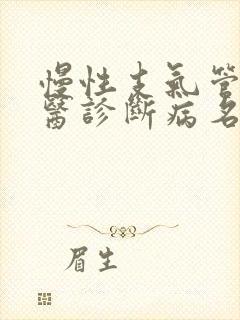 慢性支氣管
醫診斷病名
眉生